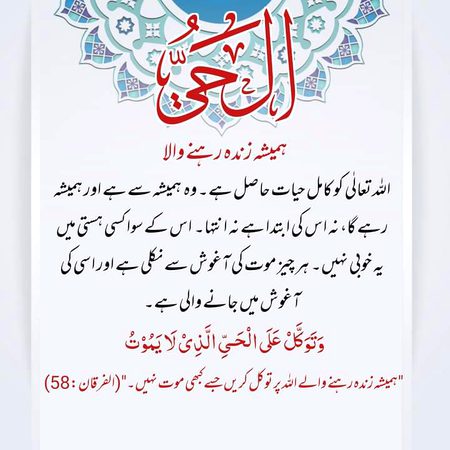 الْحَيُّ
ہمیشہ زندہ رہنے والا
اللہ تعالٰی کو کامل حیات حاصل ہے۔ وہ ہمیشہ سے ہے اور ہمیشہ
رہے گا، نہ اس کی ابتدا ہے نہ انتہا۔ اس کے سوا کسی ہستی میں
یہ خوبی نہیں۔ ہر چیز موت کی آغوش سے نکلی ہے اور اسی کی
آغوش میں جانے والی ہے۔
وَتَوَكَّلْ عَلَى الْحَيِّ الَّذِیْ لَا یَمُوْتُ
"ہمیشہ زندہ رہنے والے اللہ پر توکل کریں جسے کبھی موت نہیں۔"(الفرقان:58)